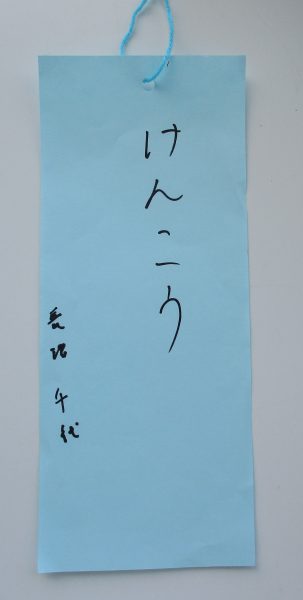 けんこう
長沼 千代